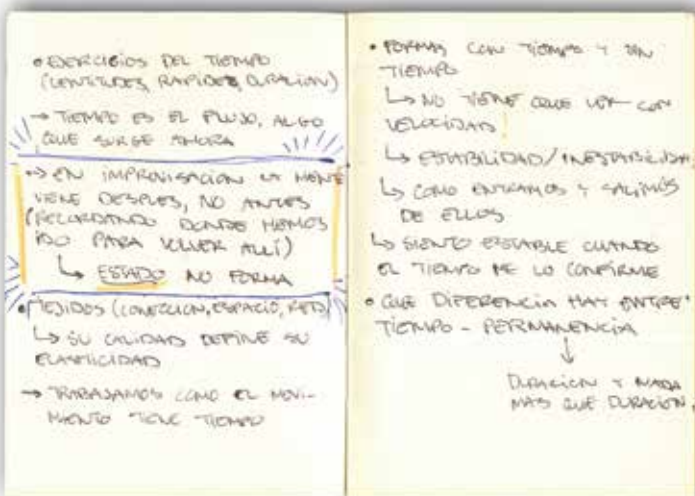 • EJERCICIOS DEL TIEMPO
(LENTITUDES, RAPIDEZ, DURACIÓN)
→ TIEMPO ES EL FLUJO, ALGO
QUE SURGE AHORA
•→ EN IMPROVISACIÓN LA MENTE
VIENE DESPUES, NO ANTES
(RECORDANDO DONDE HEMOS
IDO PARA VOLVER ALLÍ)
↳ ESTADO NO FORMA
• TEJIDOS (CONECCION, ESPACIO, RED)
↳ SU CALIDAD DEFINE SU
ELASTICIDAD
→ TRABAJAMOS COMO EL MOVI-
MIENTO TIENE TIEMPO
• FORMAS CON TIEMPO Y SIN
TIEMPO
↳ NO TIENE QUE VER CON
VELOCIDAD!
↳ ESTABILIDAD/INESTABILIDAD
↳ COMO ENTRAMOS Y SALIMOS
DE ELLOS
↳ SIENTO ESTABLE CUANDO
EL TIEMPO ME LO CONFIRME
• QUE DIFERENCIA HAY ENTRE
TIEMPO - PERMANENCIA
↓
DURACION Y NADA
MAS QUE DURACION.